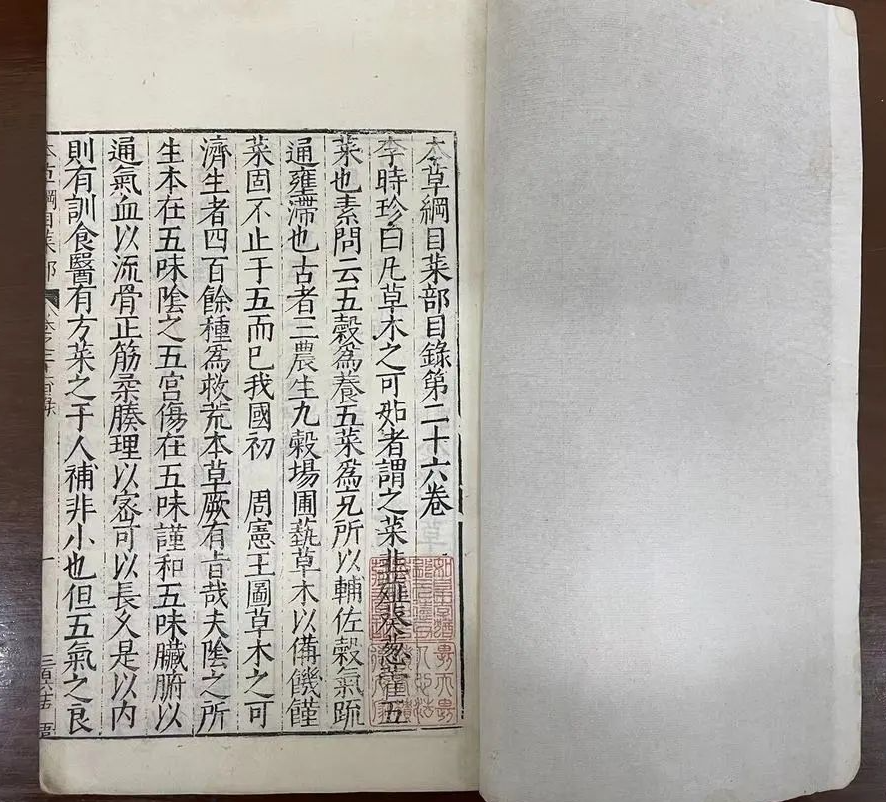 本草綱目菜部目錄第二十六卷
李時珍曰凡草木之可茹者謂之菜韭薤葵葱藿五
菜也素問云五穀爲養五菜爲充所以輔佐穀氣疏
通壅滯也古者三農生九穀場圃蓺草木以備饑饉
菜固不止于五而已我國初 周憲王圖草木之可
濟生者四百餘種爲救荒本草厥有旨哉夫陰之所
生本在五味陰之五宮傷在五味謹和五味臟腑以
通氣血以流骨正筋柔腠理以密可以長久是以内
則有訓食醫有方菜之于人補非小也但五氣之良
本草綱目菜部